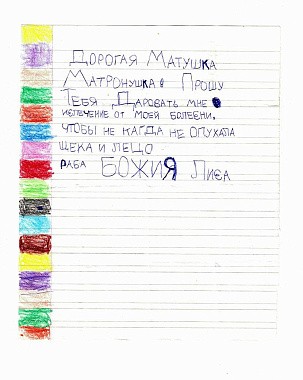 Дорогая Матушка
Матронушка! Прошу
Тебя Даровать мне
излечение от моей болезни,
чтобы не кагда не опухала
щека и лецо
раба БОЖИЯ Лиза